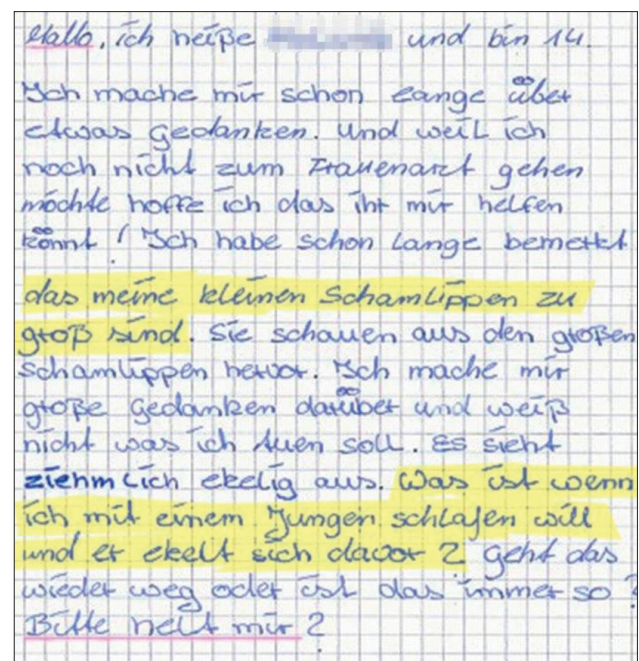 Hallo, ich heiße und bin 14.
Ich mache mir schon lange über
etwas Gedanken. Und weil ich
noch nicht zum Frauenarzt gehen
möchte hoffe ich das ihr mir helfen
könnt! Ich habe schon lange bemerkt
das meine kleinen Schamlippen zu
groß sind. Sie schauen aus den großen
Schamlippen hervor. Ich mache mir
große Gedanken darüber und weiß
nicht was ich tuen soll. Es sieht
ziehmlich ekelig aus. Was ist wenn
ich mit einem Jungen schlafen will
und er ekelt sich davor? Geht das
wieder weg oder ist das immer so?
Bitte helft mir?